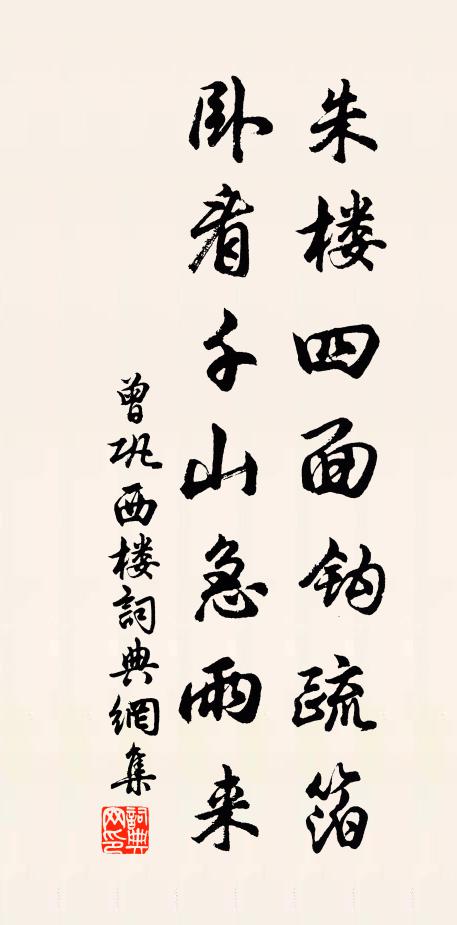 朱楼四面钩疏箔
卧看千山急雨来
曾巩西楼詞典網集
詞典网印